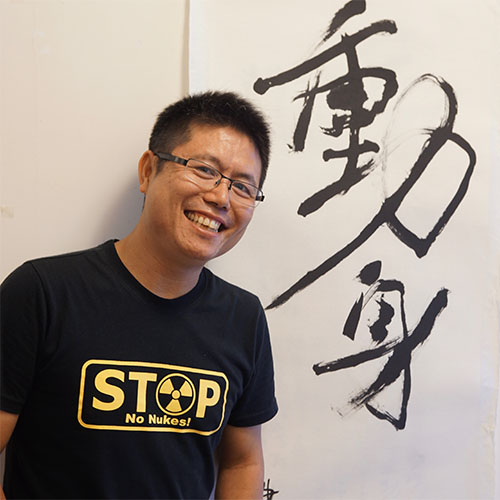 動
身
STOP
No Nukes!